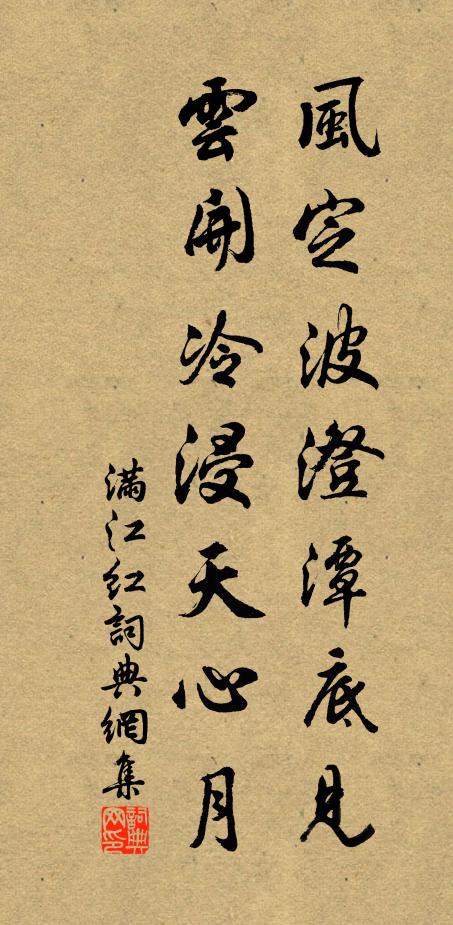 風定波澄潭底見
雲開冷浸天心月
滿江紅詞典網集
詞典
网印